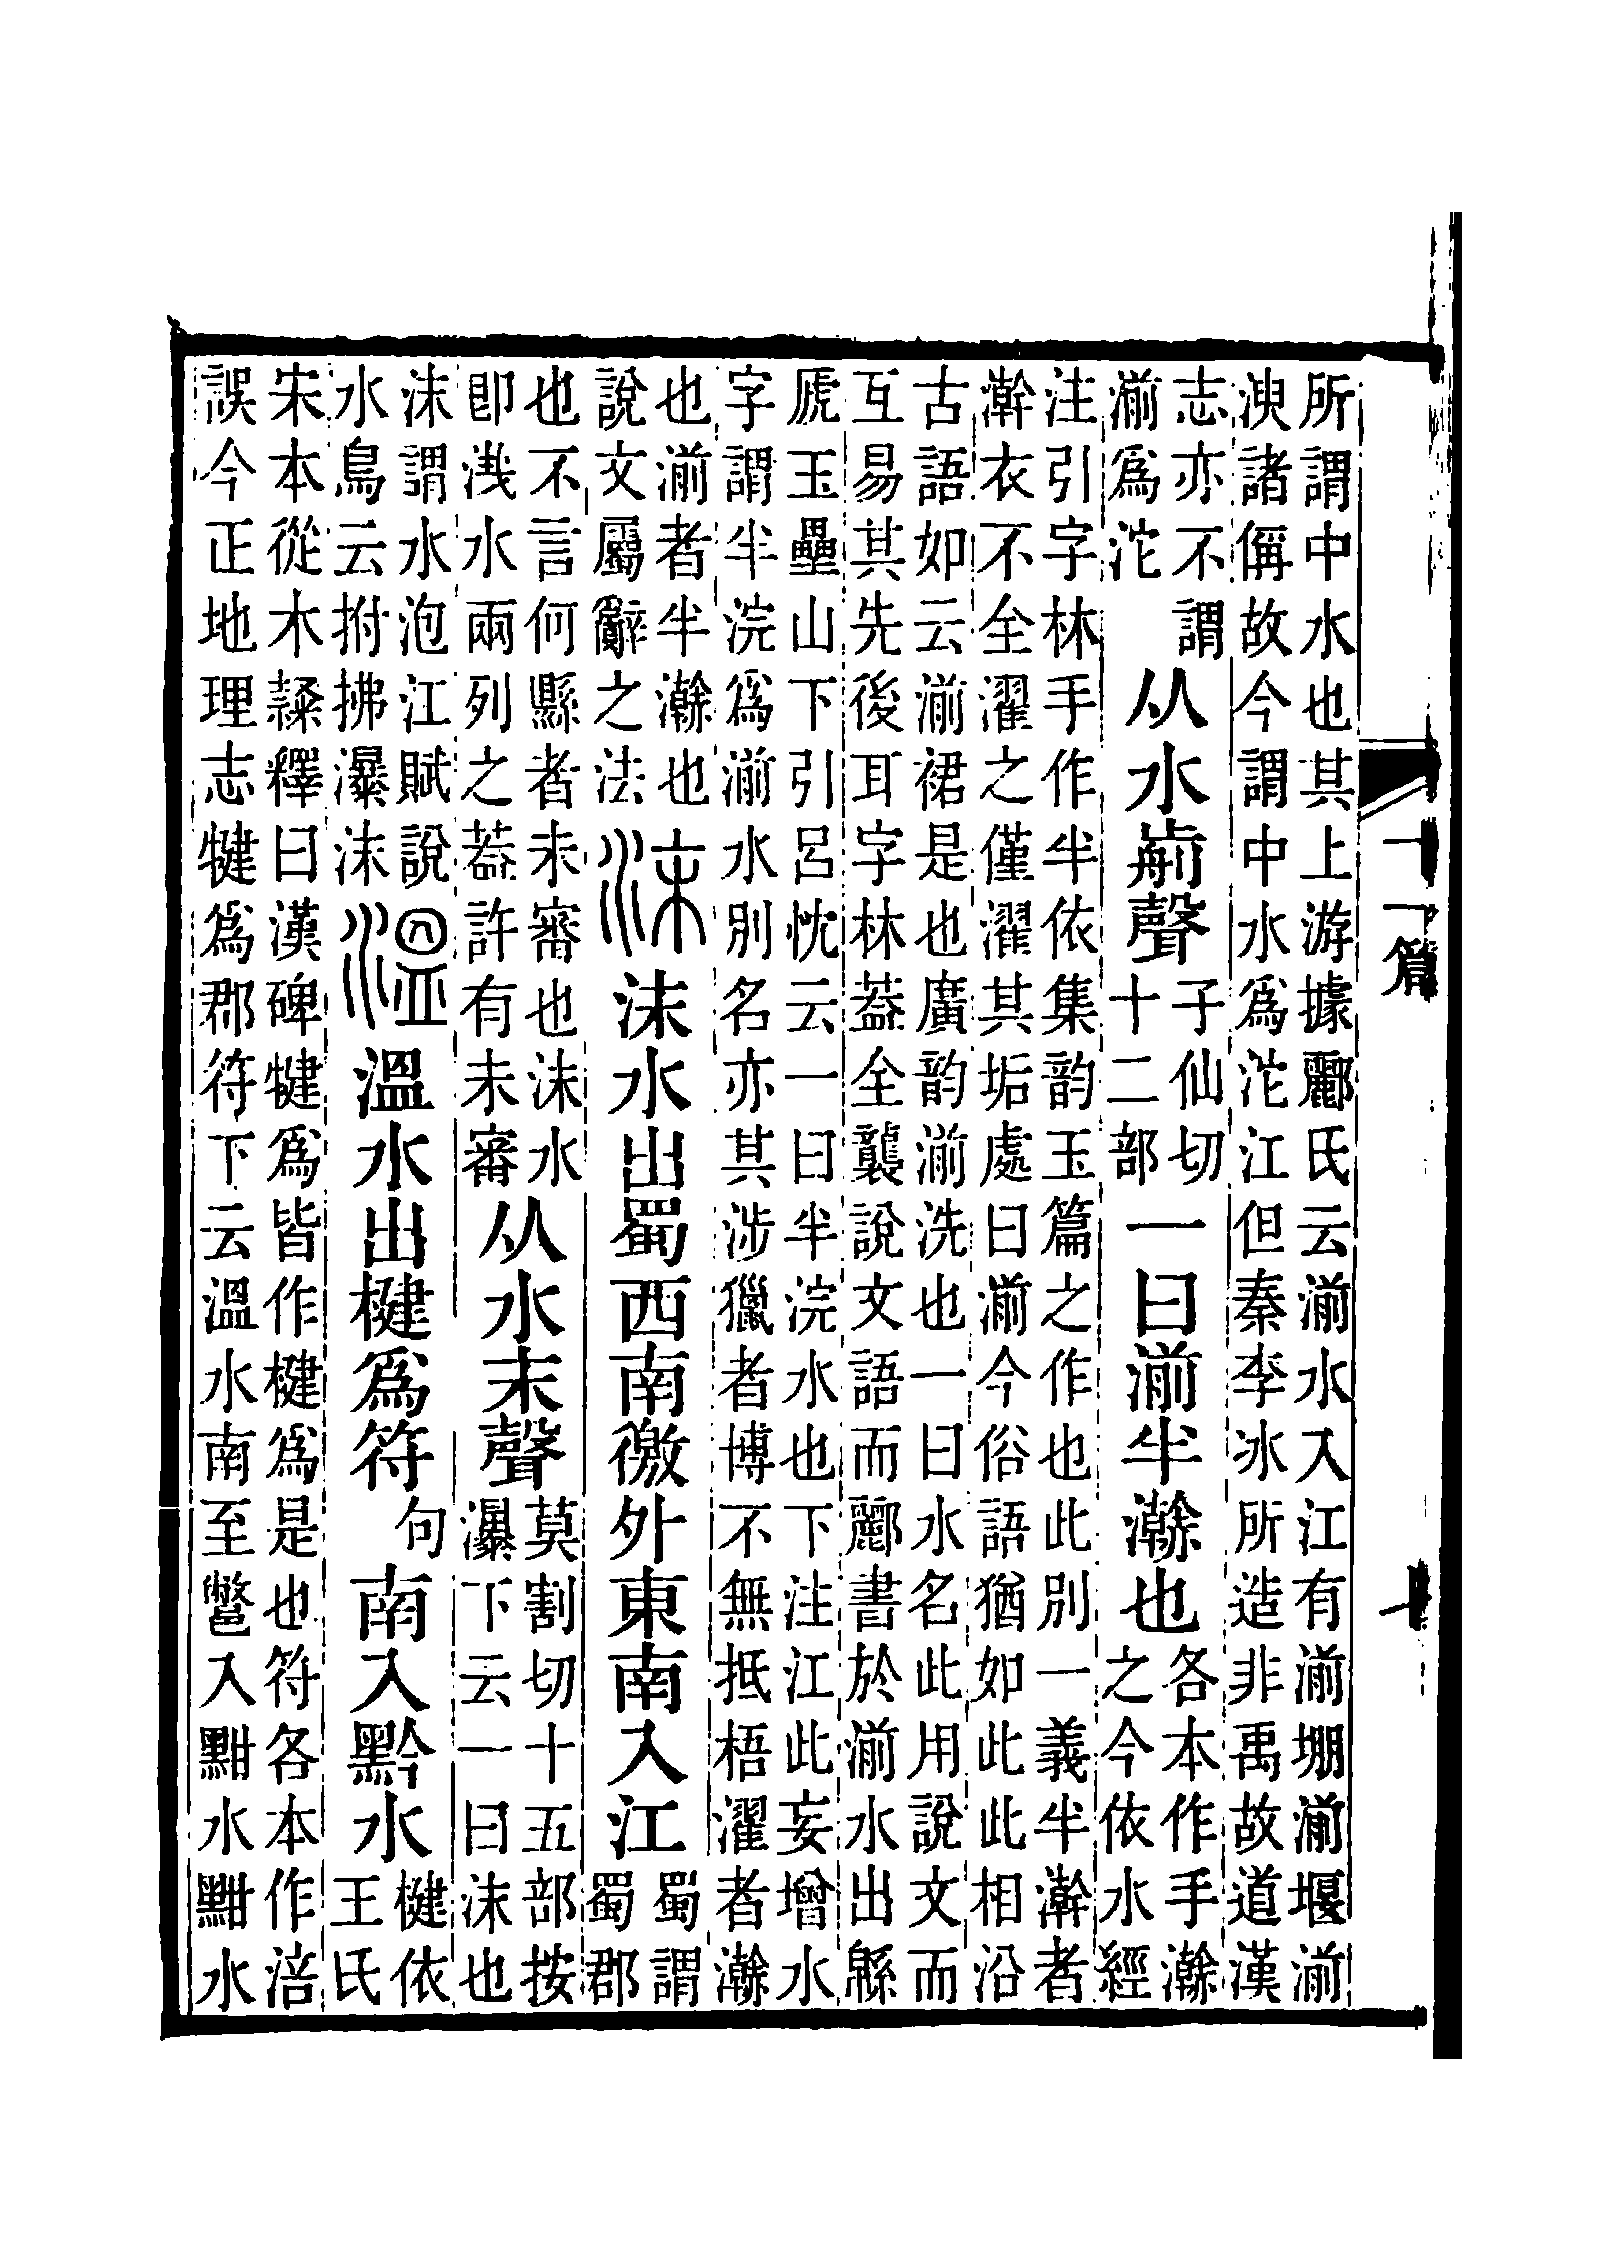 十一篇
十
所謂中水也其上游據酈氏云湔水入江有湔堋湔堰湔
㳛諸偁故今謂中水爲沱江但秦李冰所造非禹故道漢
志亦不謂
湔爲沱
从水歬聲
子仙切
十二部
一曰湔半澣也
各本作手澣
之今依水經
注引字林手作半依集韵玉篇之作也此別一義半澣者
澣衣不全濯之僅濯其垢處曰湔今俗語猶如此此相沿
古語如云湔裙是也廣韵湔洗也一曰水名此用說文而
互易其先後耳字林葢全襲說文語而酈書於湔水出緜
虒玉壘山下引呂忱云一曰半浣水也下注江此妄增水
字謂半浣爲湔水別名亦其涉獵者博不無抵梧濯者澣
也湔者半澣也
說文屬辭之法
沫
沫水出蜀西南徼外東南入江
蜀謂
蜀郡
也不言何縣者未審也沫水
卽涐水兩列之葢許有未審
从水末聲
莫割切十五部按
瀑下云一曰沫也
沫謂水泡江賦說
水鳥云拊拂瀑沫
溫
溫水出楗爲符
句
南入黔水
楗依
王氏
宋本從木隸釋曰漢碑犍爲皆作楗爲是也符各本作涪
誤今正地理志犍爲郡符下云溫水南至鄨入黚水黚水